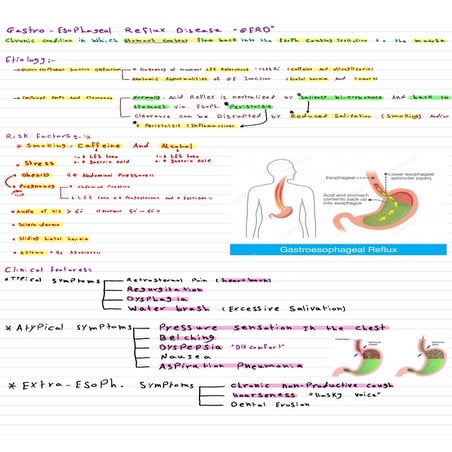 Gastro-Esophageal Reflux Disease -GERD-
Chronic condition in which stomach content flow back into the Esoph. Causing irritation to the mucosa
Etiology:-
Gastro-esophageal Junction dysfunction
Anatomic Abnormalities of GE Junction
(hiatal hernia and tumors)
Impaired Acid Clearance
Normally Acid Reflex is neutralized by Salivary bi-carbonate and back to
stomach via Esoph. Peristalsis
Clearance can be Disrupted by Reduced Salivation (Smoking) and/or
Peristalsis (Inflammation)
Risk Factors:-
Smoking, Caffeine And Alcohol
Stress
Obesity Abdominal Pressure
Pregnancy
Abdominal Pressure
LES tone Progesterone and Estrogen
Angle of his > 60° Normal 50°-60°
Scleroderma
Sliding hiatal hernia
Asthma
Esophageal
Lower esophageal
sphincter (open)
Acid and stomach
contents back up
into esophagus
Gastroesophageal Reflux
Clinical Features:
*Typical Symptoms
Retrosternal Pain (heartburn)
Regurgitation
Dysphagia
Water brash (Excessive Salivation)
* Atypical symptoms
Pressure sensation in the chest
Belching
Dyspepsia "Discomfort"
Nausea
Aspiration Pneumonia
* Extra-Esoph. Symptoms
Chronic non-Productive cough
Hoarseness "Husky voice"
Dental Erosion